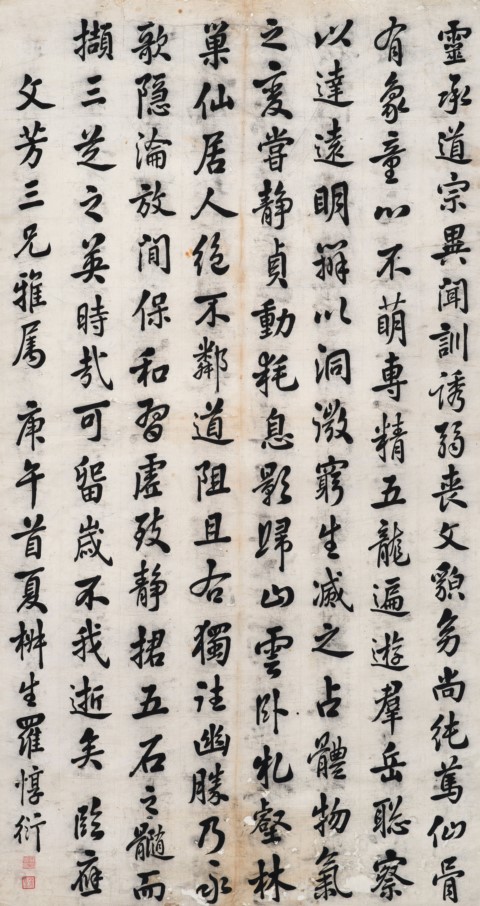 靈承道宗異聞訓誘弱喪文貌多尚純篤仙骨
有象童心不萌專精五龍遍遊羣岳聡察
以達遠明辯以洞微窮生滅之占體物氣
之變嘗靜貞動耗息影歸山雲卧壑林
巢仙居人絕不鄰道阻且右獨幽勝乃永
歌隐淪放閒保和習虛致靜捃五石之髓而
擷三芝之英時哉可留歲不我逝矣 臨應
文芳三兄雅属 庚午首夏椒生羅惇衍